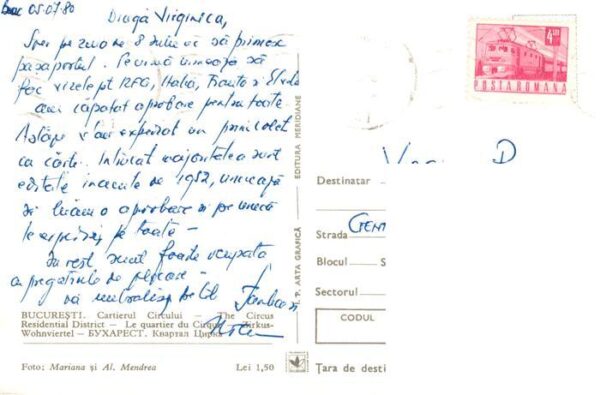 buc 05.07.80
Dragă Virginica,
Sper pe ziua de 8 iulie ac să primesc
pașaportul. Pe urmă urmează să
fac vizele pt RFG, Italia, Franța și
am căpătat aprobare pentru toate
Astăzi v-am expediat un prim colet
cu cărți. Întrucât majoritatea sunt
editate înainte de 1952, urmează
să luăm o aprobare și pe urmă
le expediez pe toate -
În rest sunt foarte ocupată
cu pregătirile de plecare -
vă
BUCUREȘTI. Cartierul Circului — The Circus
Residential District — Le quartier du Cirque — Zirkus-
Wohnviertel — БУХАРЕСТ. Квартал Цирка
Foto: Mariana și Al. Mendrea Lei 1,50
EDITURA MERIDIANE
I. P. ARTA GRAFICĂ
4 LEI
POSTA ROMANA
D
Destinatar
Strada
Blocul S
Sectorul
CODUL
Țara de desti